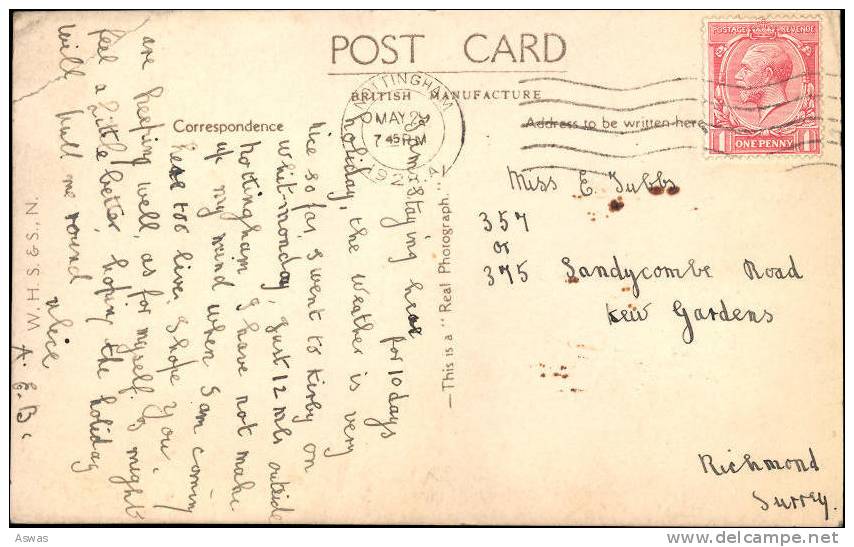 POST CARD
BRITISH MANUFACTURE
Correspondence
Address to be written here
NOTTINGHAM
MAY 2
7 45 PM
192
POSTAGE REVENUE
1 ONE PENNY 1
Miss E. Tubbs
357
or
375 Sandycombe Road
Kew Gardens
Richmond
Surrey.
—This is a "Real Photograph."—
am staying here for 10 days
holiday, the weather is very
nice so far, I went to Kirby on
Whit-monday, just 12 mls outside
Nottingham I have not make
up my mind when I am coming
here too live, I hope you
are keeping well, as for myself I might
feel a little better, hoping the holiday
will pull me round
Alice
A. E. B.
W. H. S. & S., N.
Aswas
www.delcampe.net